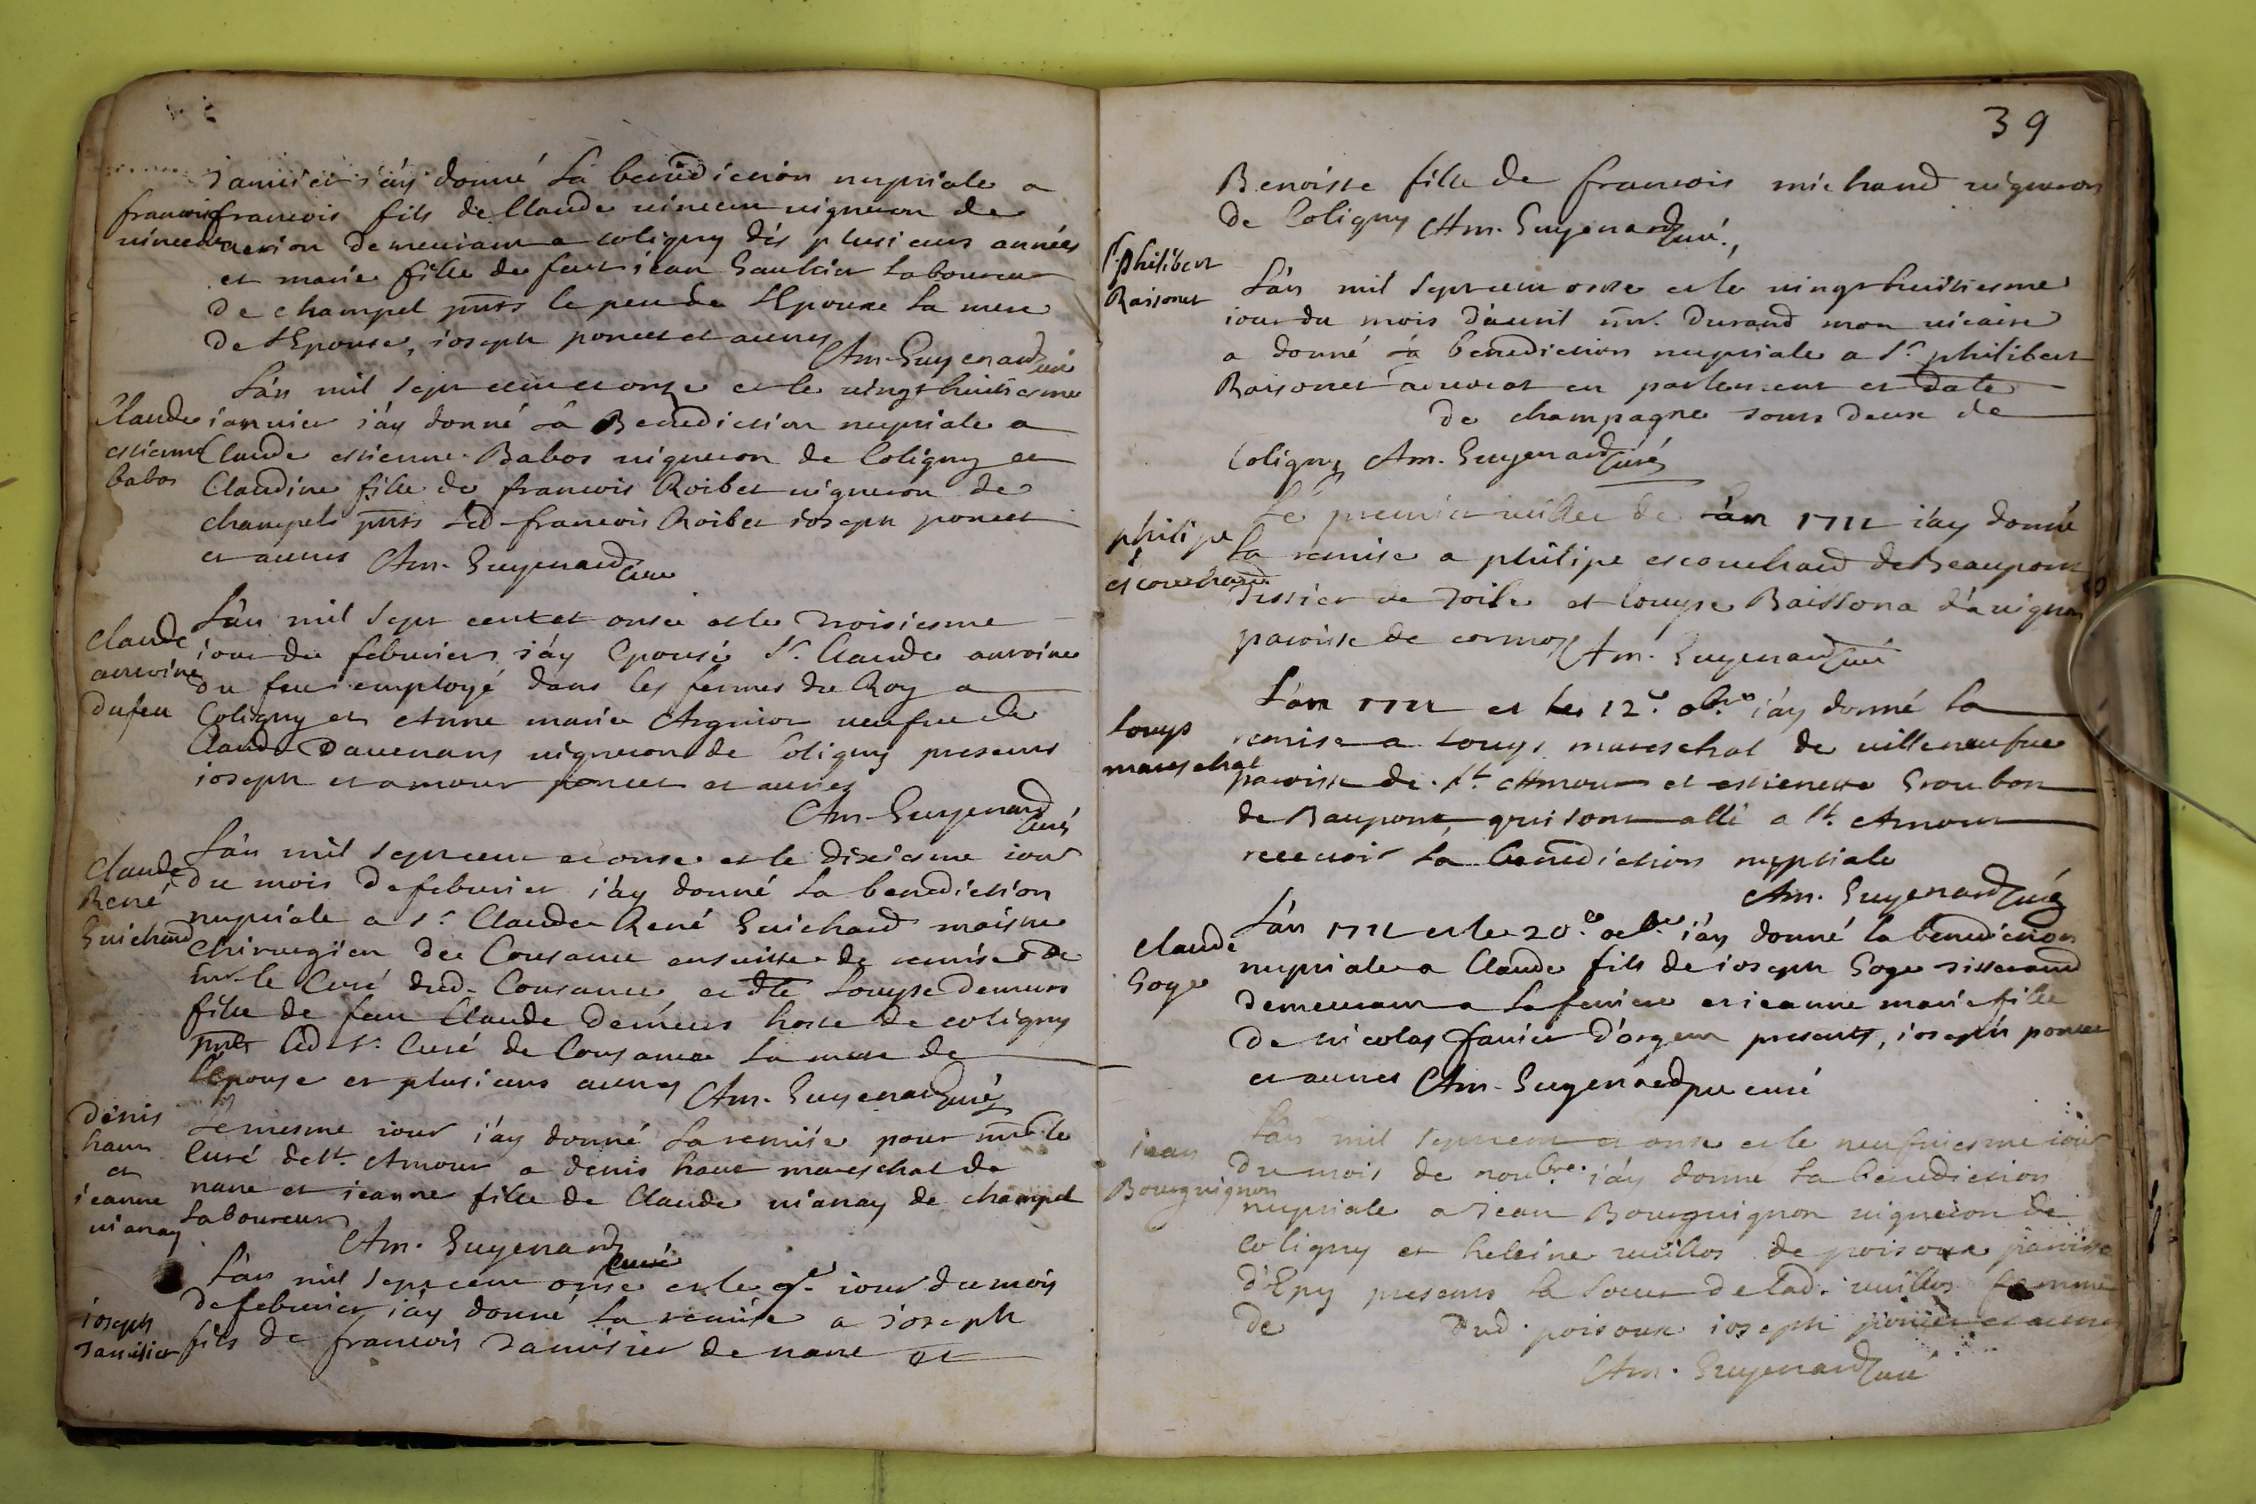 janvier i'ay donné la benediction nuptiale a
francois
vincent
francois fils de Claude vincent vigneron de
demeurant a coligny dès plusieurs années
et marie fille de feu iean Gautier laboureur
de champel pnts le pere de l'Epoux la mere
de l'Epouse, ioseph poncet et autres
Am. Guyenard curé
Claude
estienne
babos
L'an mil sept cent et onze et le vingt huitiesme
ianvier i'ay donné la Benediction nuptiale a
Claude estienne Babos vigneron de Coligny et
Claudine fille de francois Roibet vigneron de
champels pnts led francois Roibet ioseph poncet
et autres Am. Guyenard Curé
Claude
antoine
dufeu
L'an mil sept cent et onse et le troisiesme
iour de februier i'ay Epousé Sr. Claude antoine
du feu employé dans les fermes du Roy a
Coligny et Anne marie Arguiot veufue de
Claude Dauenans vigneron de Coligny presents
ioseph et amour poncet et autres
Am. Guyenard
Curé
Claude
René
Guichard
L'an mil sept cent et onse et le dixiesme iour
du mois de februier i'ay donné la benediction
nuptiale a Sr. Claude René Guichard maistre
chirurgien de Cousance ensuitte de remise de
mr. le Curé dud. Cousance et dlle Louyse demurs
fille de feu Claude demeurs hoste de coligny
pnts led Sr. Curé de Cousance la mere de
l'Epouse et plusieurs autres Am. Guyenard curé
Denis
haut
et
ieanne
vianay
Le mesme iour i'ay donné la remise pour mr le
Curé de St. Amour a denis haut mareschal de
nanc et ieanne fille de Claude vianay de champel
laboureur
Am. Guyenard
curé
ioseph
Tamisier
L'an mil sept cent onse et le 9e. iour du mois
de februier i'ay donné la remise a ioseph
fils de francois Tamisier de nanc et
39
Benoiste fille de francois michaud vigneron
de Coligny Am. Guyenard curé.
Sr. philibert
Raisonet
L'an mil sept cent onse et le vingt huitiesme
iour du mois d'auril mr. Durand mon vicaire
a donné la benediction nuptiale a Sr philibert
Raisonet aduocat en parlement et dlle
de champagne tous deux de
Coligny Am. Guyenard curé
philipe
escouchard
Le premier iuillet de l'an 1711 i'ay donné
la remise a philipe escouchard de Beaupont
tissier de toile et louyse Baissona d'auignon
paroisse de cormoz Am. Guyenard curé
Louys
mareschal
L'an 1711 et le 12e. 8bre i'ay donné la
remise a Louys mareschal de villeneufue
paroisse de St. Amour et estienette Groubon
de Baupont, qui sont allé a St. Amour
receuoir la benediction nuptiale
Am. Guyenard curé
Claude
Goge
L'an 1711 et le 20e. octbre i'ay donné la benediction
nuptiale a Claude fils de ioseph Goge tisserand
demeurant a la feniere et ieanne marie fille
de nicolas fanier d'argeur presents, ioseph poncet
et autres Am. Guyenard pre curé
iean
Bourguignon
L'an mil sept cent et onse et le neufuiesme iour
du mois de noubre. i'ay donné la benediction
nuptiale a Jean Bourguignon vigneron de
Coligny et heleine vuillos de poisoux paroisse
d'Epy presents la soeur de lad. vuillos femme
de dud. poisoux ioseph poncet et autres
Am. Guyenard curé